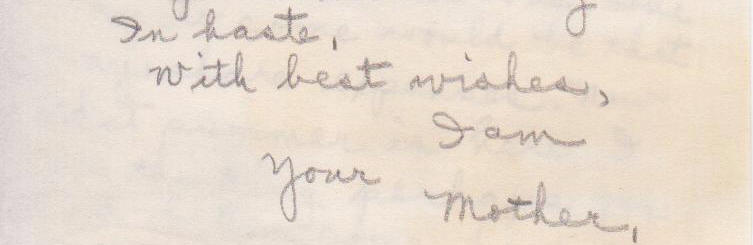 In haste,
With best wishes,
I am
Your Mother,